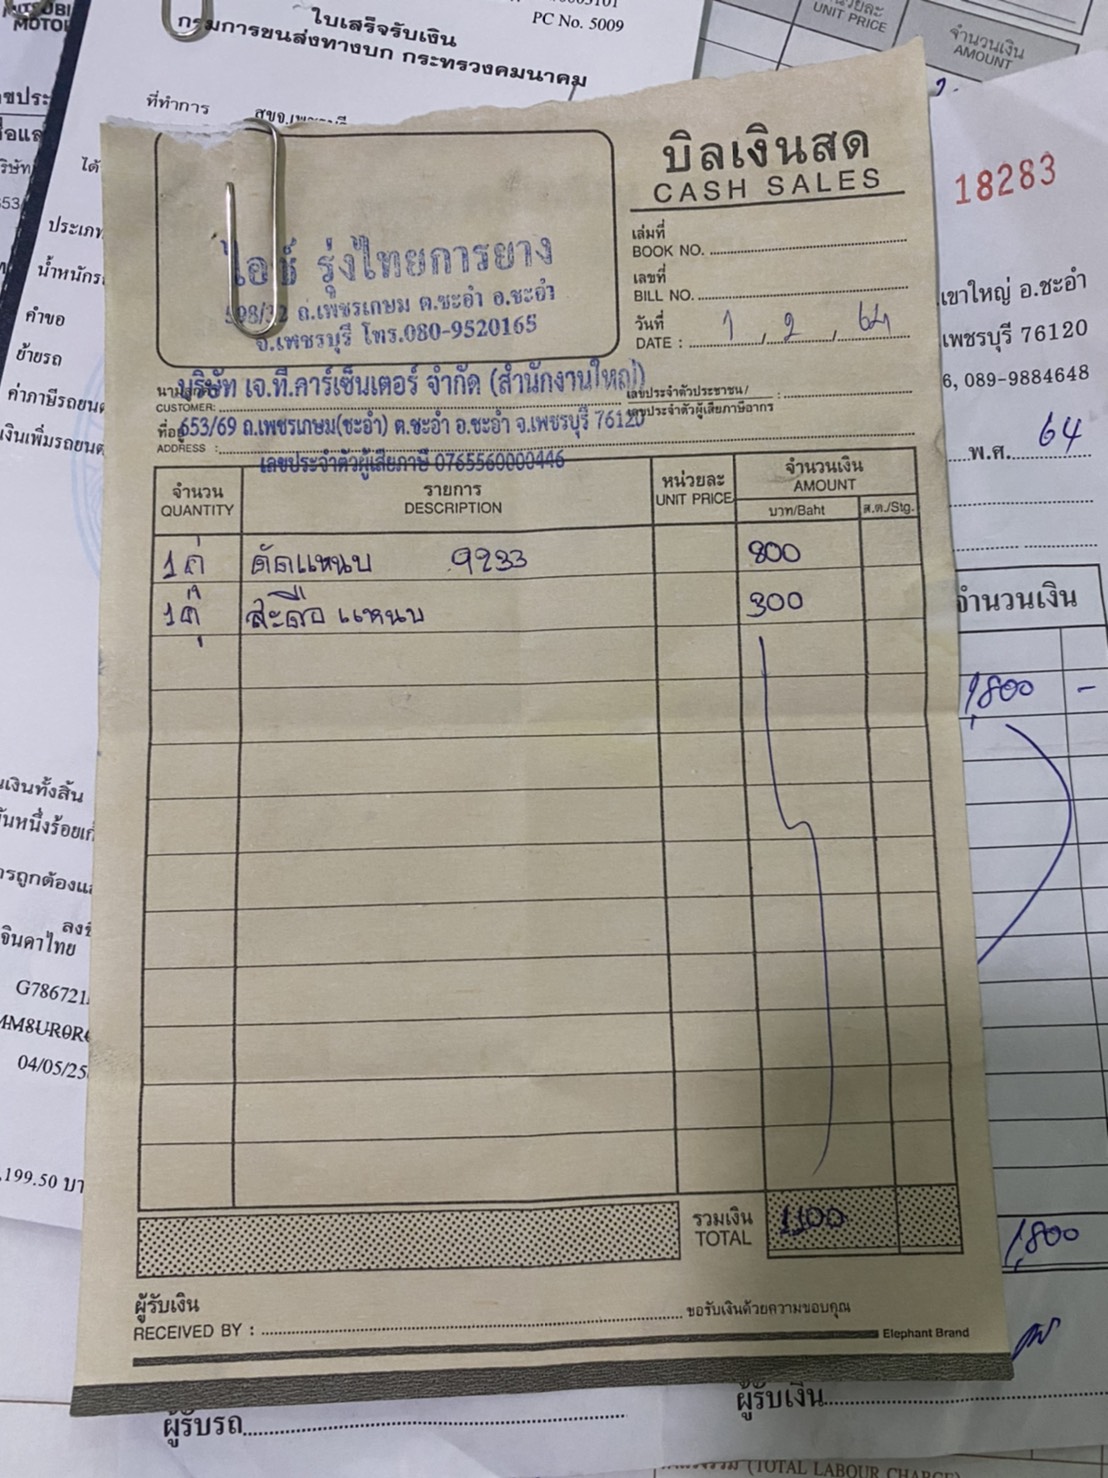 ใบเสร็จรับเงิน
กรมการขนส่งทางบก กระทรวงคมนาคม
PC No. 5009
ที่ทำการ
หน่วยละ
UNIT PRICE
จำนวนเงิน
AMOUNT
ประเภท
คำขอ
ย้ายรถ
บิลเงินสด
CASH SALES
เล่มที่
BOOK NO.
เลขที่
BILL NO.
วันที่
DATE : 1 / 2 / 64
ไอซ์ รุ่งไทยการยาง
598/32 ถ.เพชรเกษม ต.ชะอำ อ.ชะอำ
จ.เพชรบุรี โทร.080-9520165
นามลูกค้า
CUSTOMER:
บริษัท เจ.ที.คาร์เซ็นเตอร์ จำกัด (สำนักงานใหญ่)
เลขประจำตัวประชาชน /
เลขประจำตัวผู้เสียภาษีอากร :
ที่อยู่
ADDRESS :
653/69 ถ.เพชรเกษม(ชะอำ) ต.ชะอำ อ.ชะอำ จ.เพชรบุรี 76120
เลขประจำตัวผู้เสียภาษี 0765560000446
จำนวน
QUANTITY
รายการ
DESCRIPTION
หน่วยละ
UNIT PRICE
จำนวนเงิน
AMOUNT
บาท/Baht
ส.ต./Stg.
1คู่ ดัดแหนบ 9233 800
1คู่ สะดือแหนบ 300
รวมเงิน
TOTAL
1,100
ผู้รับเงิน
RECEIVED BY :
ขอรับเงินด้วยความขอบคุณ
Elephant Brand
18283
เขาใหญ่ อ.ชะอำ
เพชรบุรี 76120
6, 089-9884648
พ.ศ. 64
จำนวนเงิน
1,800 -
1,800
เงินทั้งสิ้น
ลงชื่
จินดาไทย
G786721
MM8UR0R
04/05/25
,199.50 บา
ผู้รับรถ
ผู้รับเงิน
(TOTAL LABOUR CHARGE)